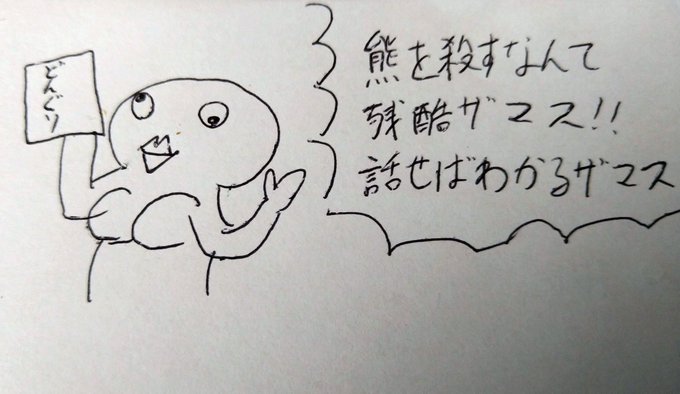 どんぐり
熊を殺すなんて
残酷ザマス!!
話せばわかるザマス